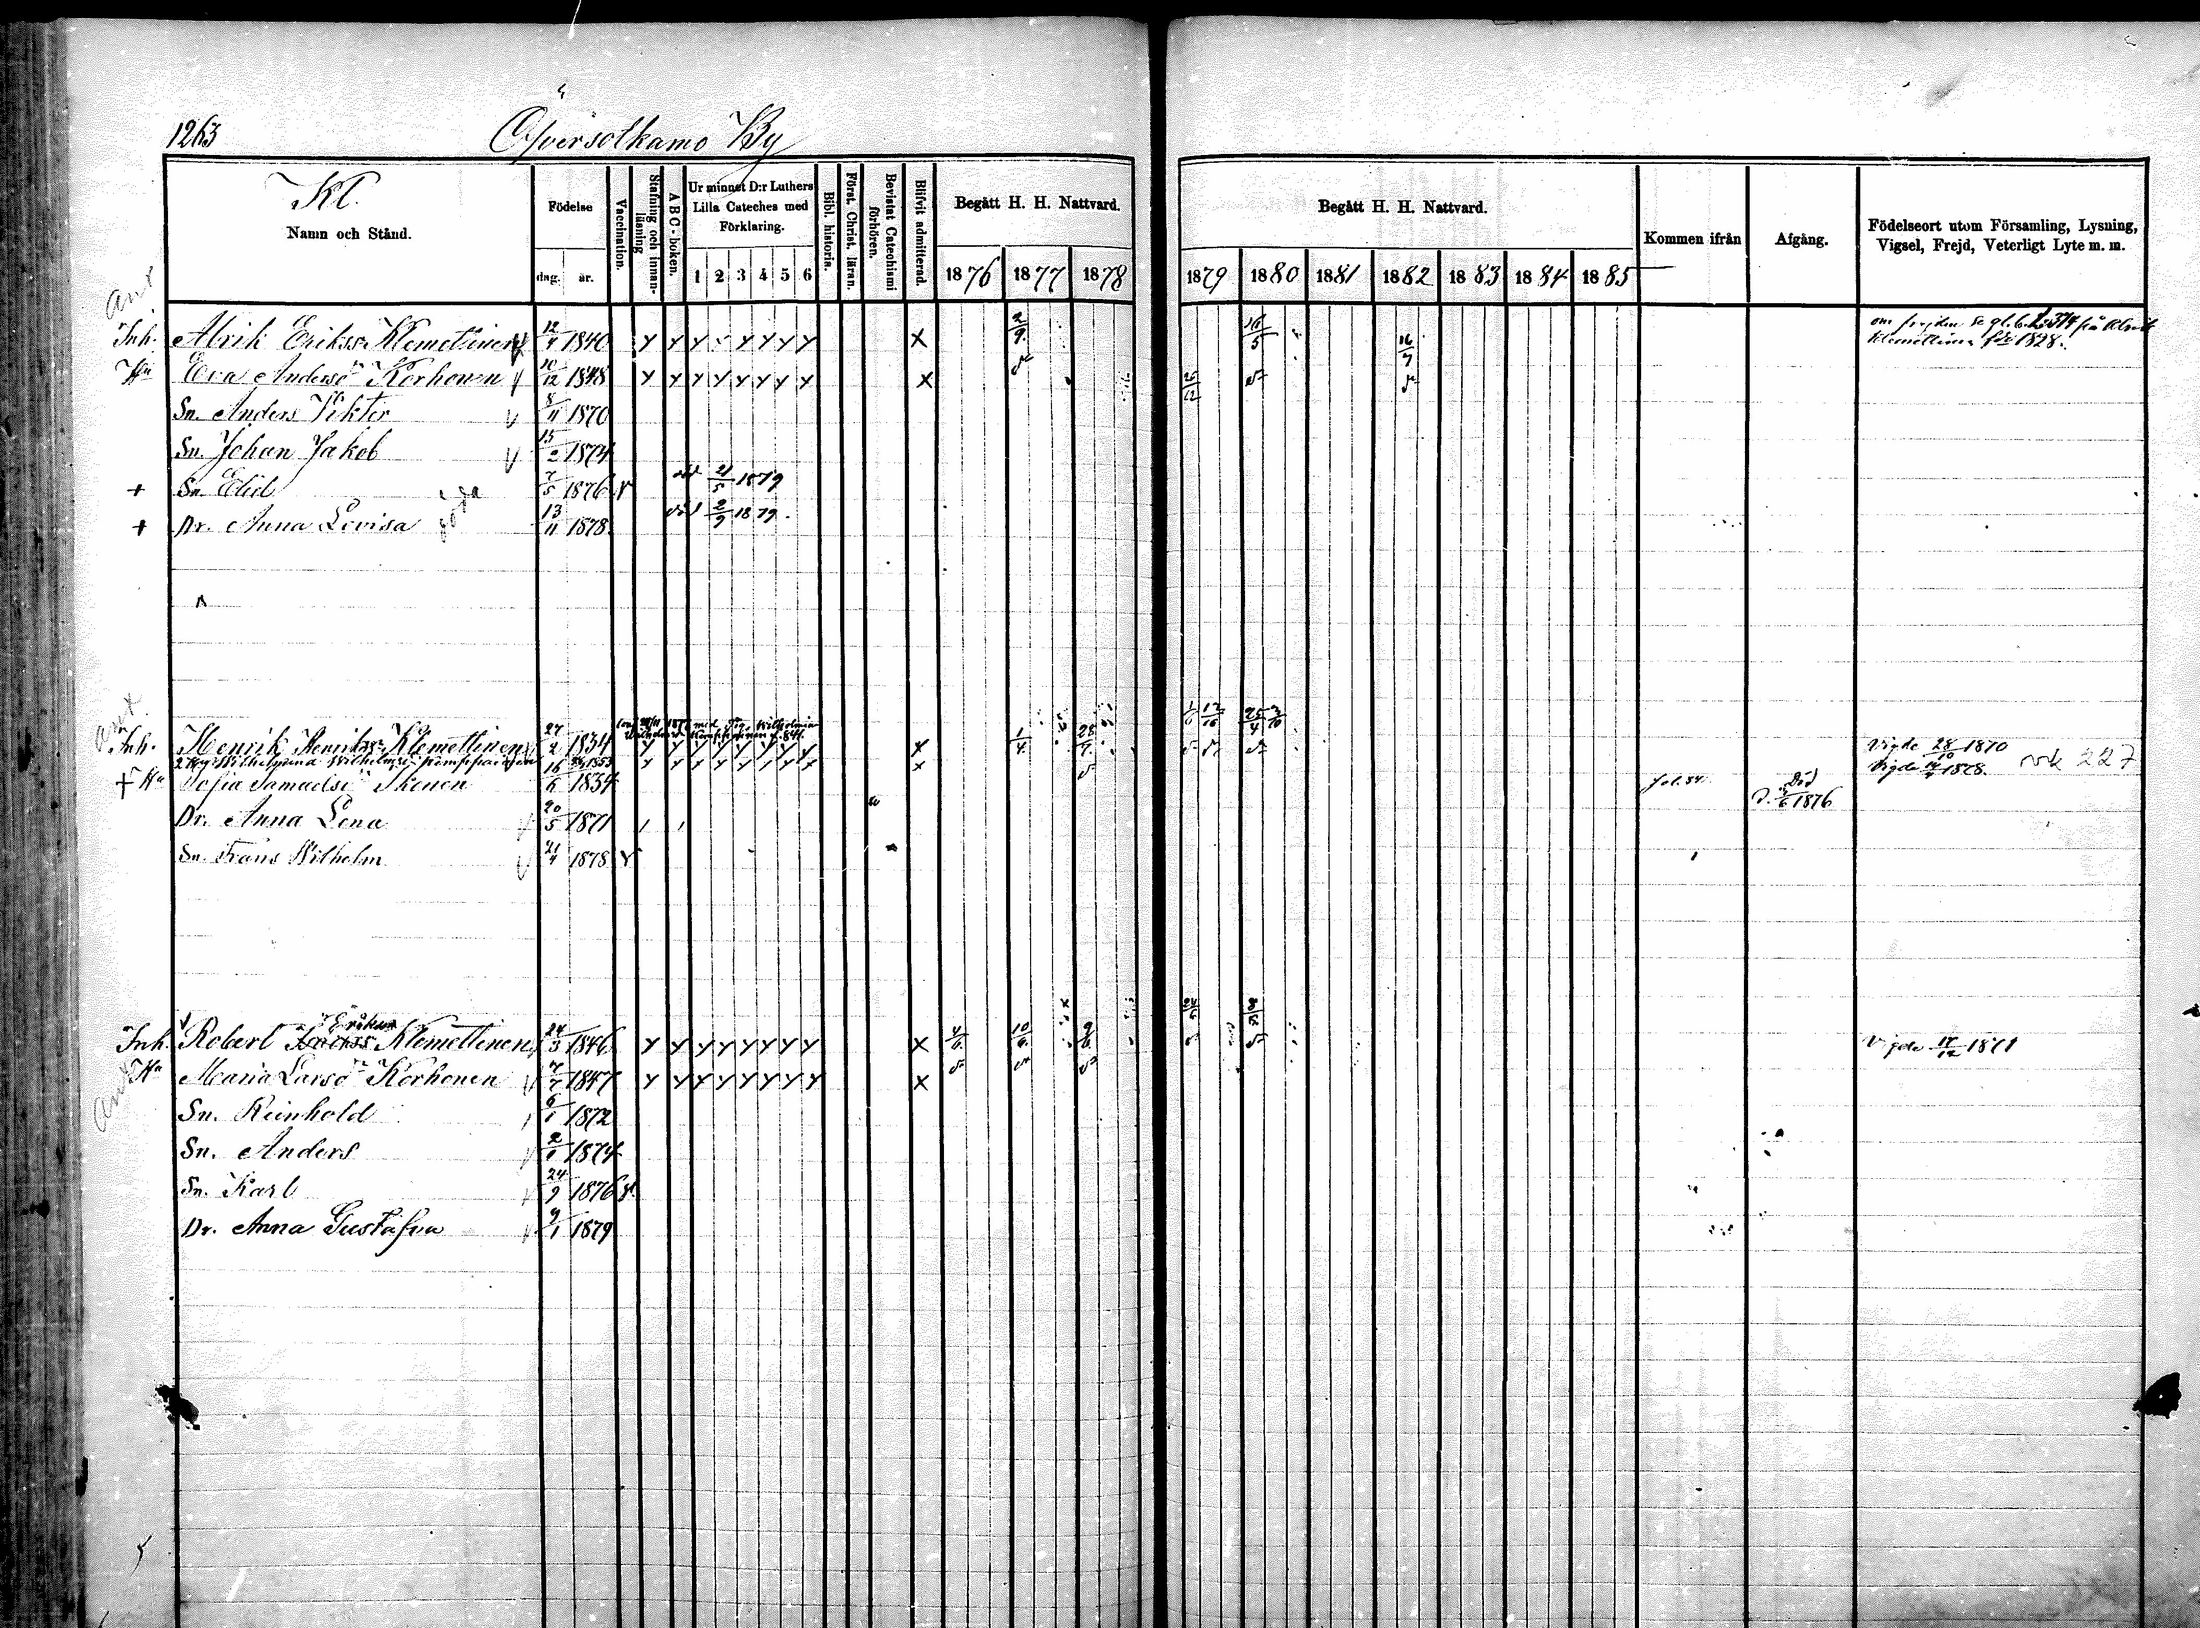 1263 Öfversotkamo By
Kl.
Namn och Stånd.
Födelse
dag. år.
Vaccination.
Stafning och innanläsning
A B C-boken.
Ur minnet D:r Luthers Lilla Cateches med Förklaring.
1 2 3 4 5 6
Bibl. historia.
Först. Christ. läran.
Bevistat Catechismi förhören.
Blifvit admitterad.
Begått H. H. Nattvard.
1876 1877 1878
Begått H. H. Nattvard.
1879 1880 1881 1882 1883 1884 1885
Kommen ifrån
Afgång.
Födelseort utom Församling, Lysning, Vigsel, Frejd, Veterligt Lyte m. m.
Inh. Alrik Erikss. Klemettinen 12/4 1840 Y Y Y Y Y Y Y Y X 2/9 16/5 16/7
Hu Eva Andersd:r Korhonen 10/12 1848 Y Y Y Y Y Y Y Y X 25/12
Sn. Anders Viktor 8/11 1870
Sn. Johan Jakob 15/2 1874
+ Sn. Elid 7/5 1876 v död 21/5 1879
+ Dr. Anna Lovisa 13/11 1878 död 2/9 1879
Inh. Henrik Henrikss. Klemettinen 27/2 1834 Y Y Y Y Y Y Y Y X 1/4 28/7 Vigde 28/10 1870
Vigde 1878. 227
+ Hu Sofia Samuelsd:r Ikonen 16/6 1834 fol. 84 Död 1876
Dr. Anna Lena 20/5 1871
Sn. Frans Wilhelm 21/4 1878 v
Inh. Robert Erikss. Klemettinen 24/3 1846 Y Y Y Y Y Y Y Y X 4/6 10/6 9/6 Vigde 17/12 1871
Hu Maria Larsd:r Korhonen 7/7 1847 Y Y Y Y Y Y Y Y X
Sn. Reinhold 6/1 1872
Sn. Anders 2/1 1874
Sn. Karl 24/9 1876 v
Dr. Anna Gustafva 9/1 1879